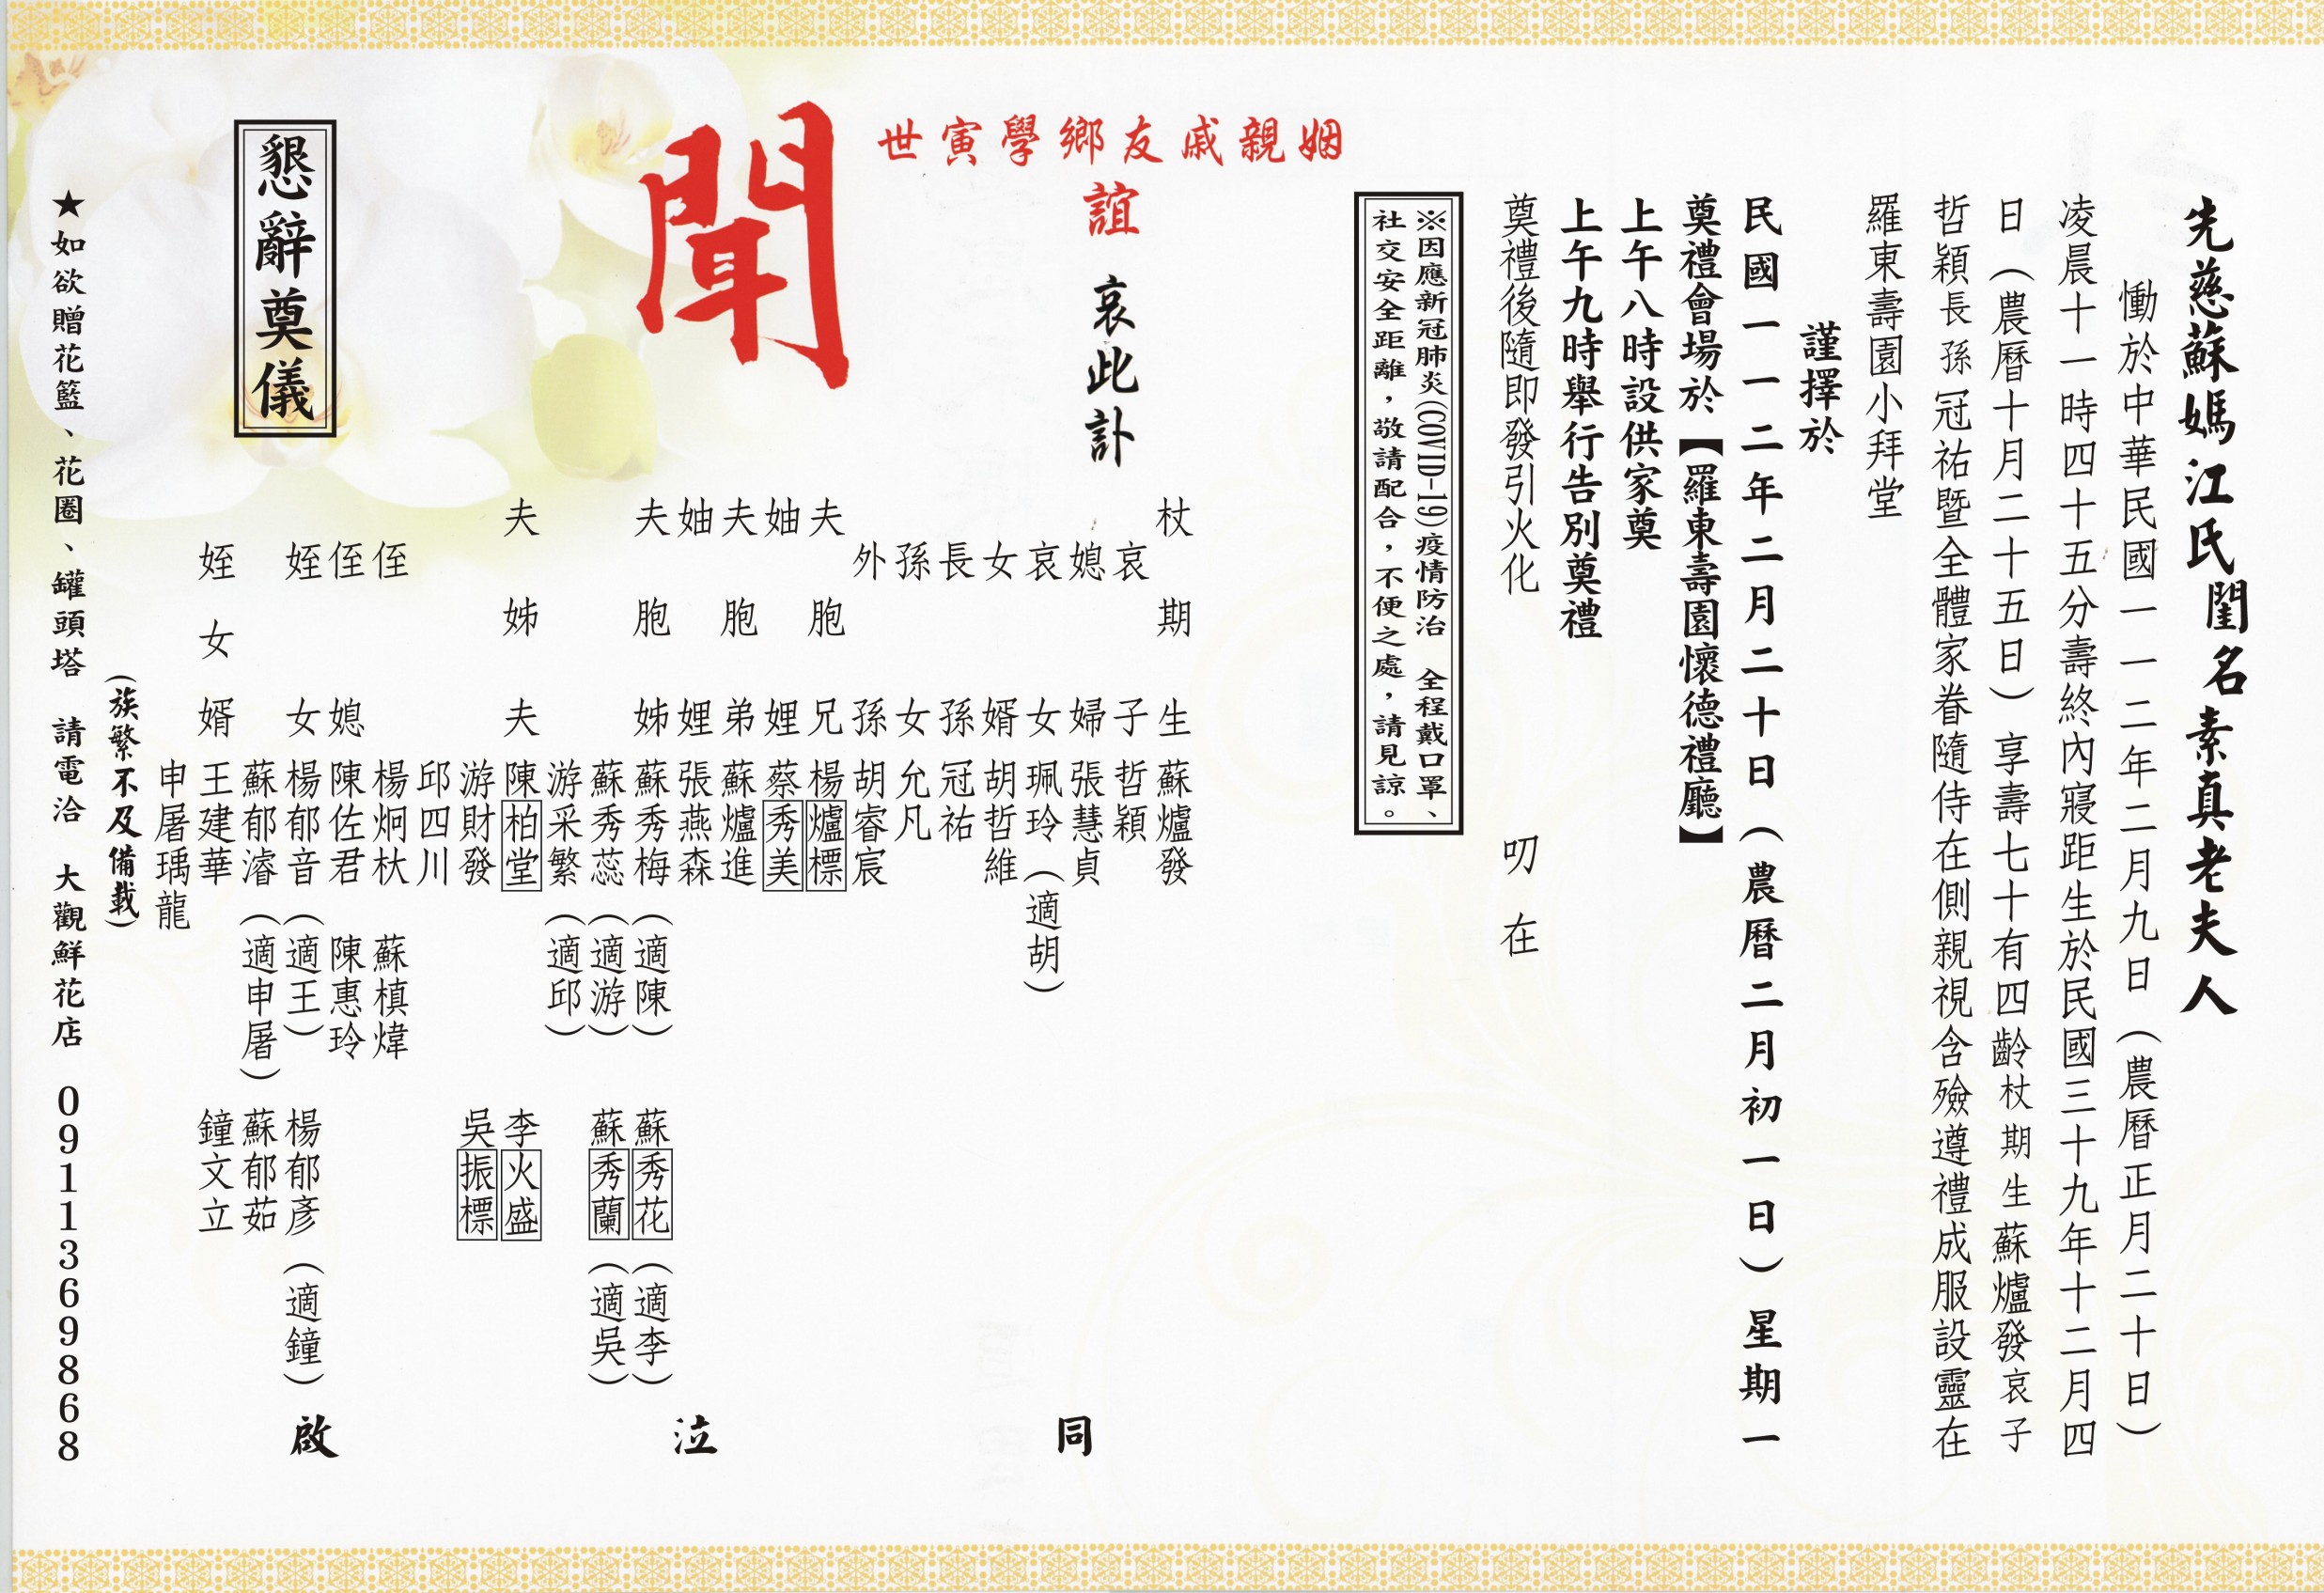 先慈蘇媽江氏閨名素真老夫人
慟於中華民國一一二年二月九日(農曆正月二十日)
凌晨十一時四十五分壽終內寢距生於民國三十九年十二月四
日(農曆十月二十五日)享壽七十有四齡杖期生蘇爐發哀子
哲穎長孫冠祐暨全體家眷隨侍在側親視含殮遵禮成服設靈在
羅東壽園小拜堂
謹擇於
民國一一二年二月二十日(農曆二月初一日)星期一
奠禮會場於【羅東壽園懷德禮廳】
上午八時設供家奠
上午九時舉行告別奠禮
奠禮後隨即發引火化
叨在
※因應新冠肺炎(COVID-19)疫情防治 全程戴口罩、
社交安全距離,敬請配合,不便之處,請見諒。
姻親戚友鄉學寅世
誼
哀此訃
聞
杖期生 蘇爐發
哀子 哲穎
媳婦 張慧貞
哀女 珮玲(適胡)
女婿 胡哲維
長孫 冠祐
孫女 允凡
外孫 胡睿宸
夫胞兄 楊爐標
妯娌 蔡秀美
夫胞弟 蘇爐進
妯娌 張燕森
夫胞姊 蘇秀梅(適陳) 蘇秀花(適李)
蘇秀蕊(適游) 蘇秀蘭(適吳)
游采繁(適邱)
夫姊夫 陳柏堂 李火盛
游財發 吳振標
邱四川
侄 楊炯杕 蘇槙煒
侄媳 陳佐君 陳惠玲
姪女 楊郁音(適王) 楊郁彥(適鐘)
蘇郁濬(適申屠) 蘇郁茹
姪女婿 王建華 鐘文立
申屠瑀龍
同泣啟
(族繁不及備載)
懇辭奠儀
★如欲贈花籃、花圈、罐頭塔 請電洽 大觀鮮花店 0911369868